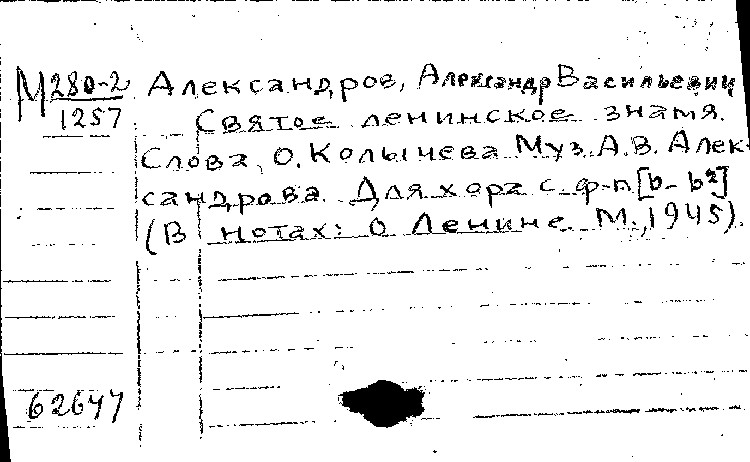 М 280-2 Александров, Александр Васильевич
1257 Святое ленинское знамя.
Слова, О. Колычева Муз. А.В. Алек-
сандрова. Для хора с ф-п [b- b²]
(В нотах: О Ленине. М., 1945).
62647